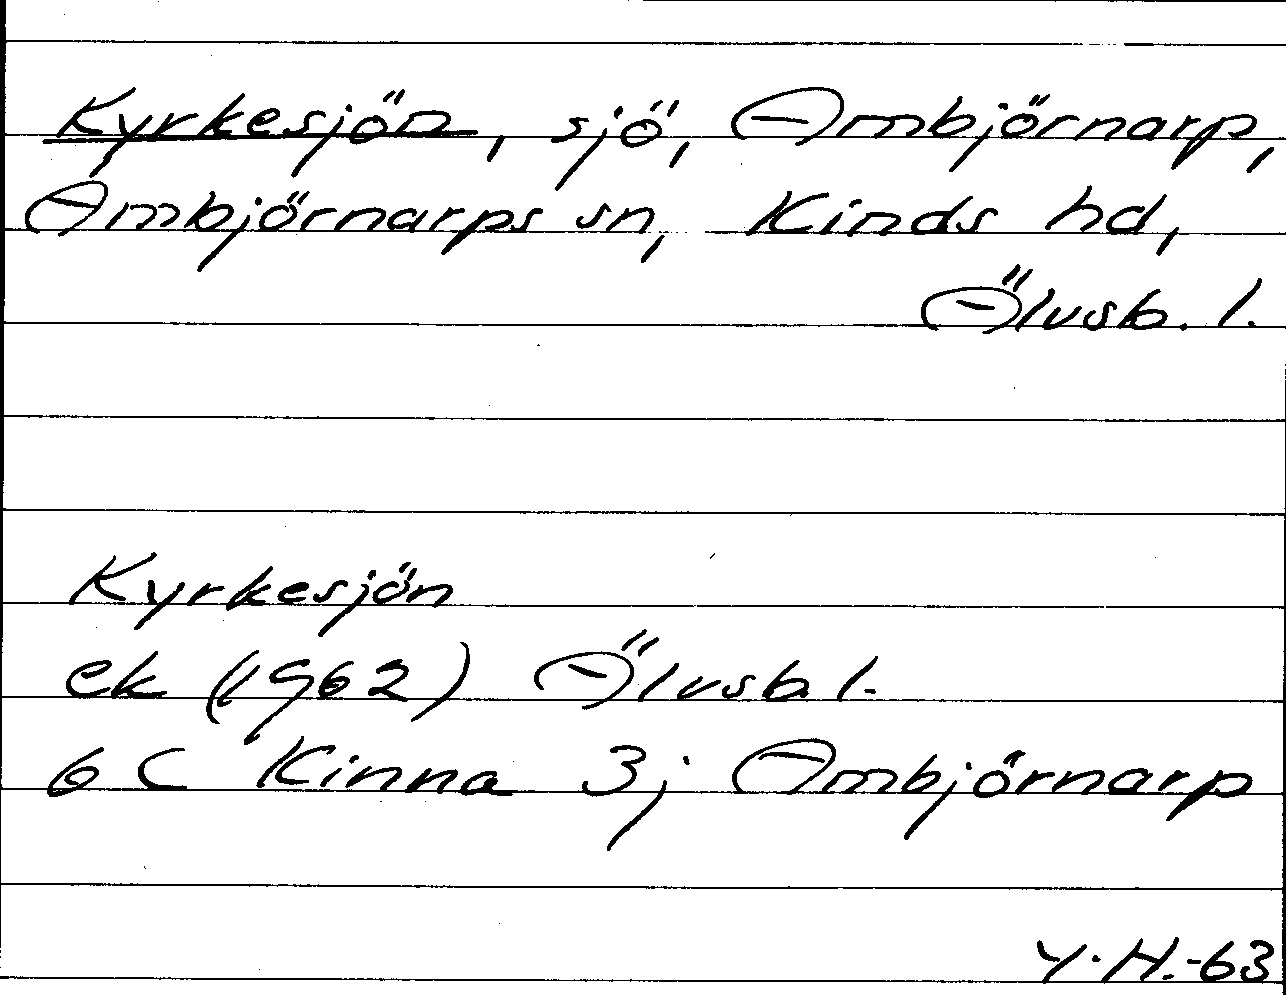 Kyrkesjön, sjö, Ambjörnarp,
Ambjörnarps sn, Kinds hd,
Älvsb. l.
Kyrkesjön
ek (1962) Älvsb. l.
6 C Kinna 3j Ambjörnarp
Y.H.-63